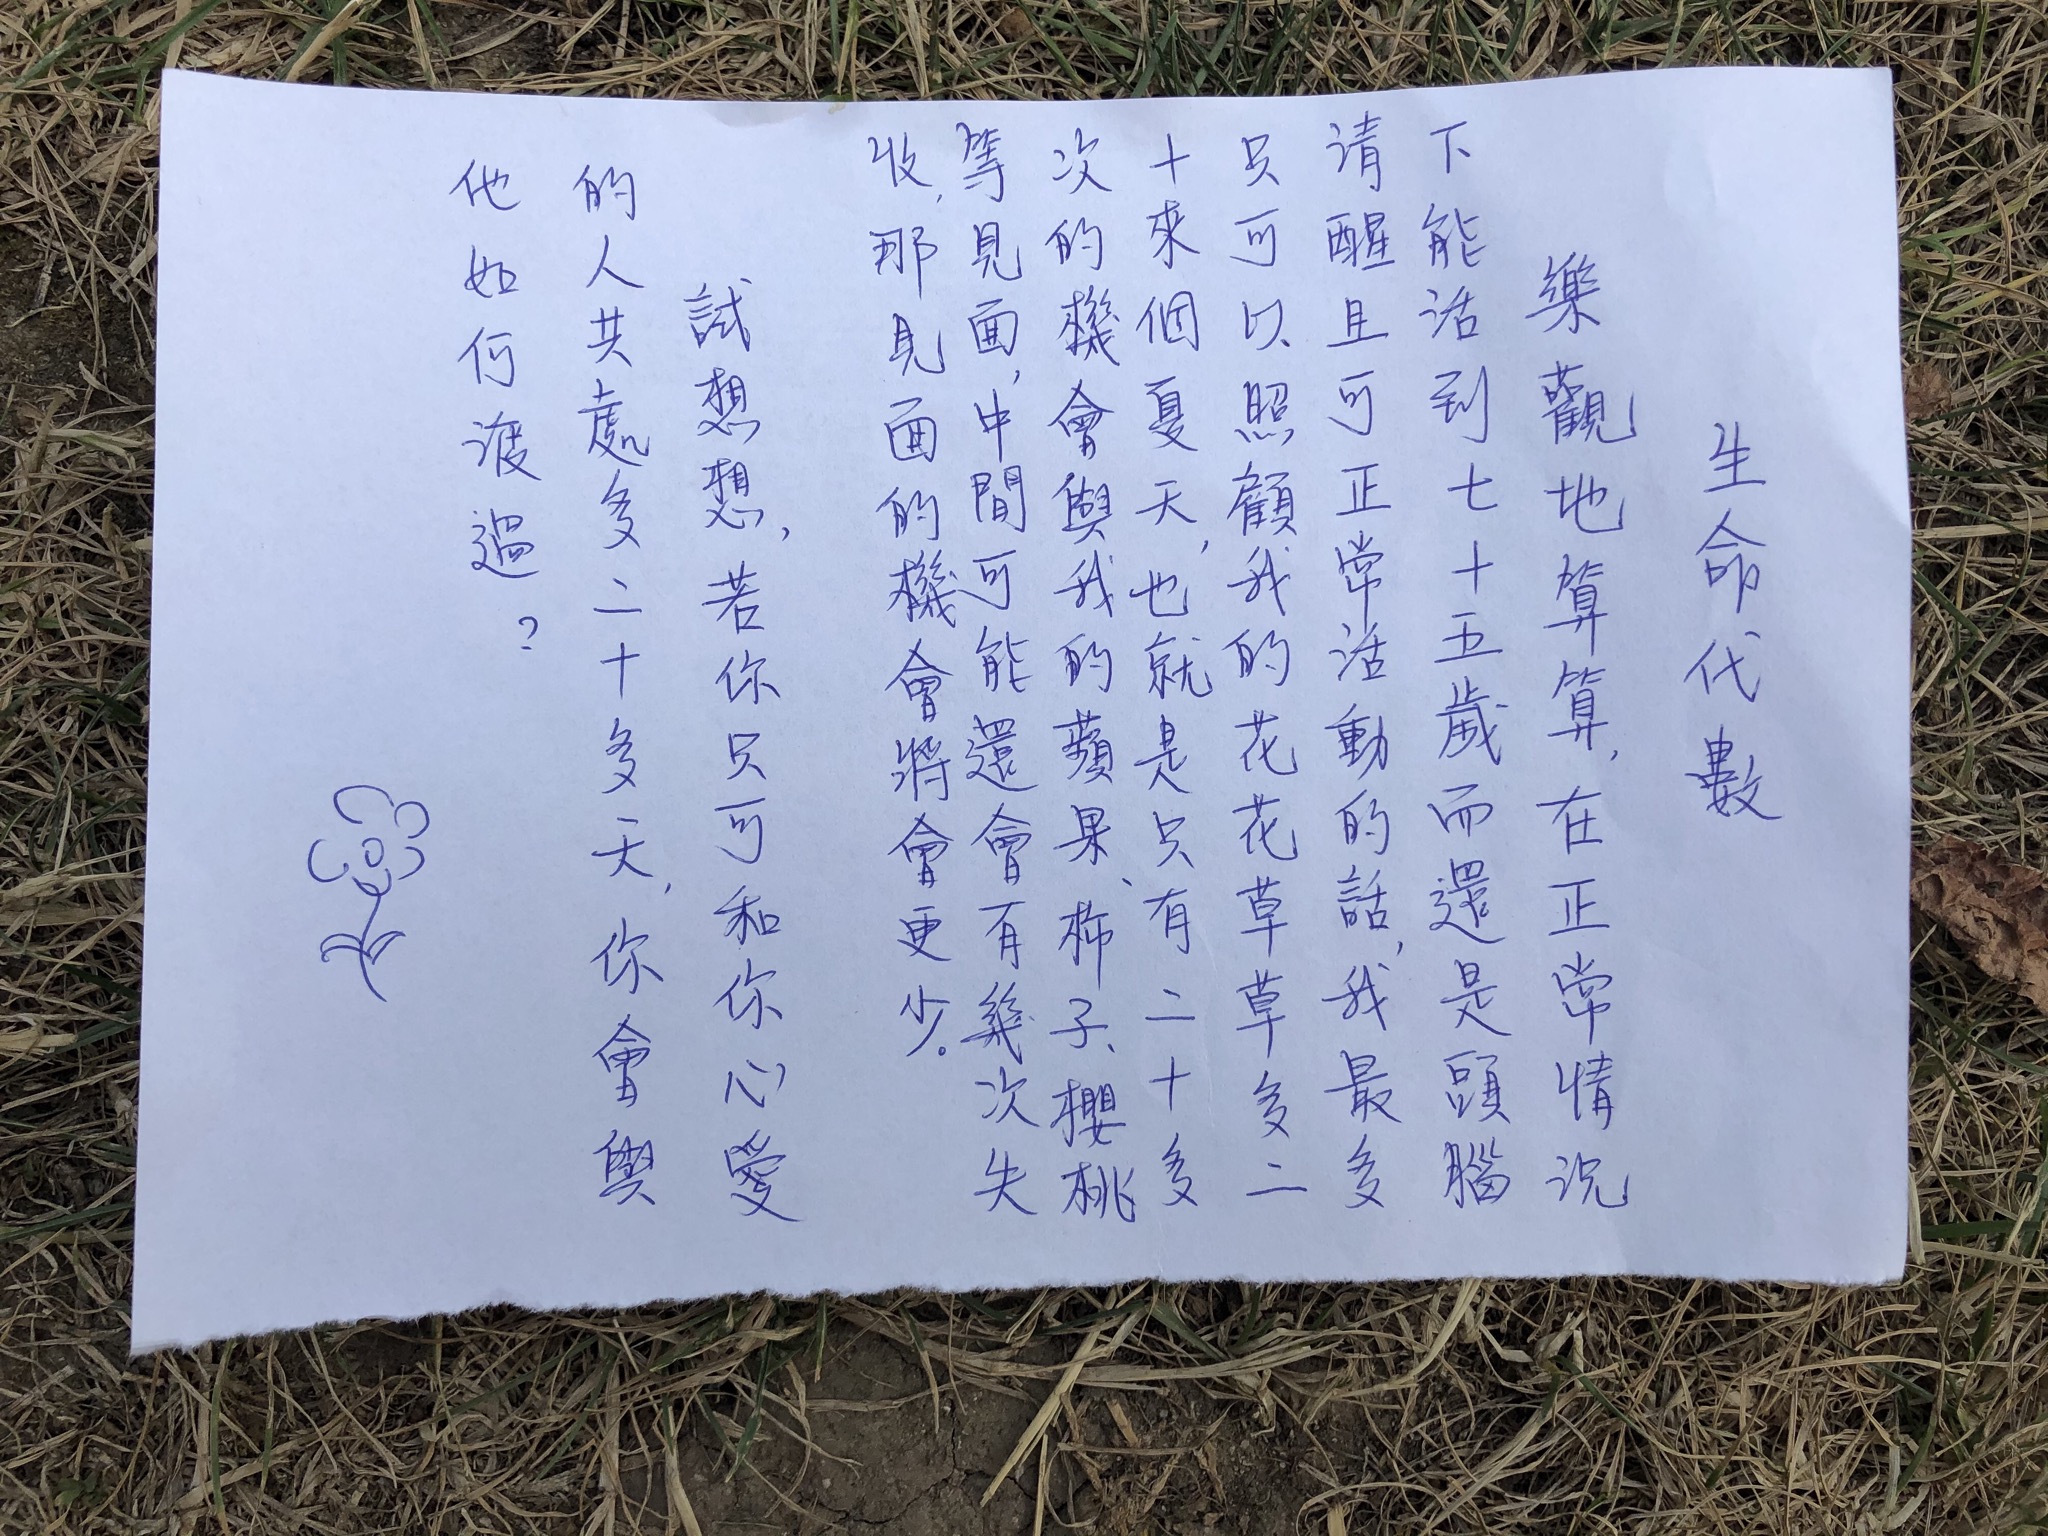 生命代數
樂觀地算算,在正常情況
下能活到七十五歲而還是頭腦
清醒且可正常活動的話,我最多
只可以照顧我的花花草草多二
十來個夏天,也就是只有二十多
次的機會與我的蘋果、柿子、櫻桃
等見面,中間可能還會有幾次失
收,那見面的機會將會更少。
試想想,若你只可和你心愛
的人共處多二十多天,你會與
他如何渡過?